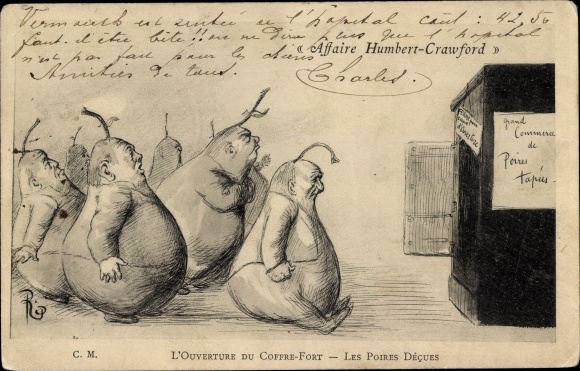 Vermouth est rentrée de l'hôpital coût : 42,50
faut-il être bête !! on ne dira plus que l'hôpital
n'est pas fait pour les chiens
Amitiés de tous.
Charles.
« Affaire Humbert-Crawford »
à Ouverture
Grand
Commerce
de
Poires
tapées.
RP
C. M.
L'Ouverture du Coffre-Fort — Les Poires Déçues